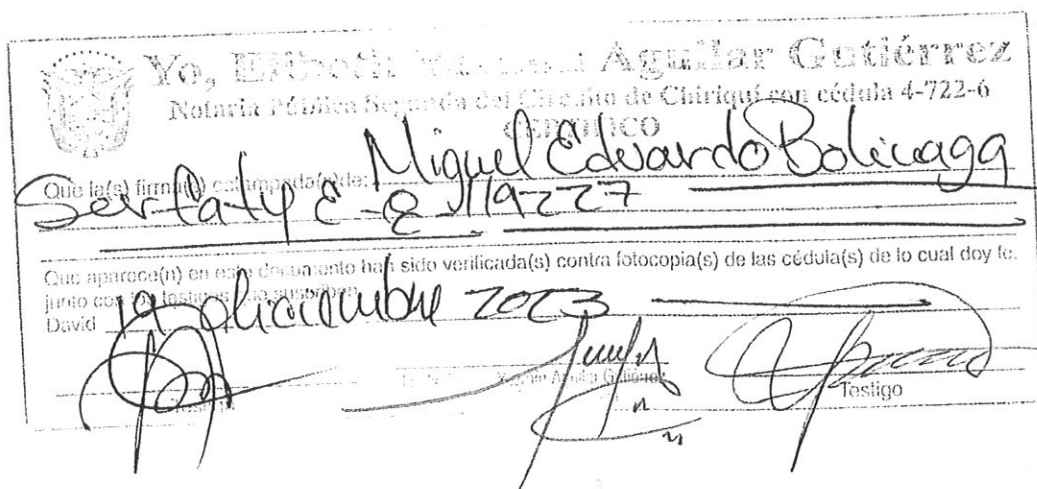 Yo, Aguilar Gutiérrez
Notaria Pública Segunda del Circuito de Chiriquí con cédula 4-722-6
CERTIFICO
Que la(s) firma(s) estampada(s) de: Miguel Eduardo
E-8-119227
Que aparece(n) en este documento han sido verificada(s) contra fotocopia(s) de las cédula(s) de lo cual doy fe.
junto con los testigos que suscriben
David 19 diciembre 2023
Testigo
Testigo